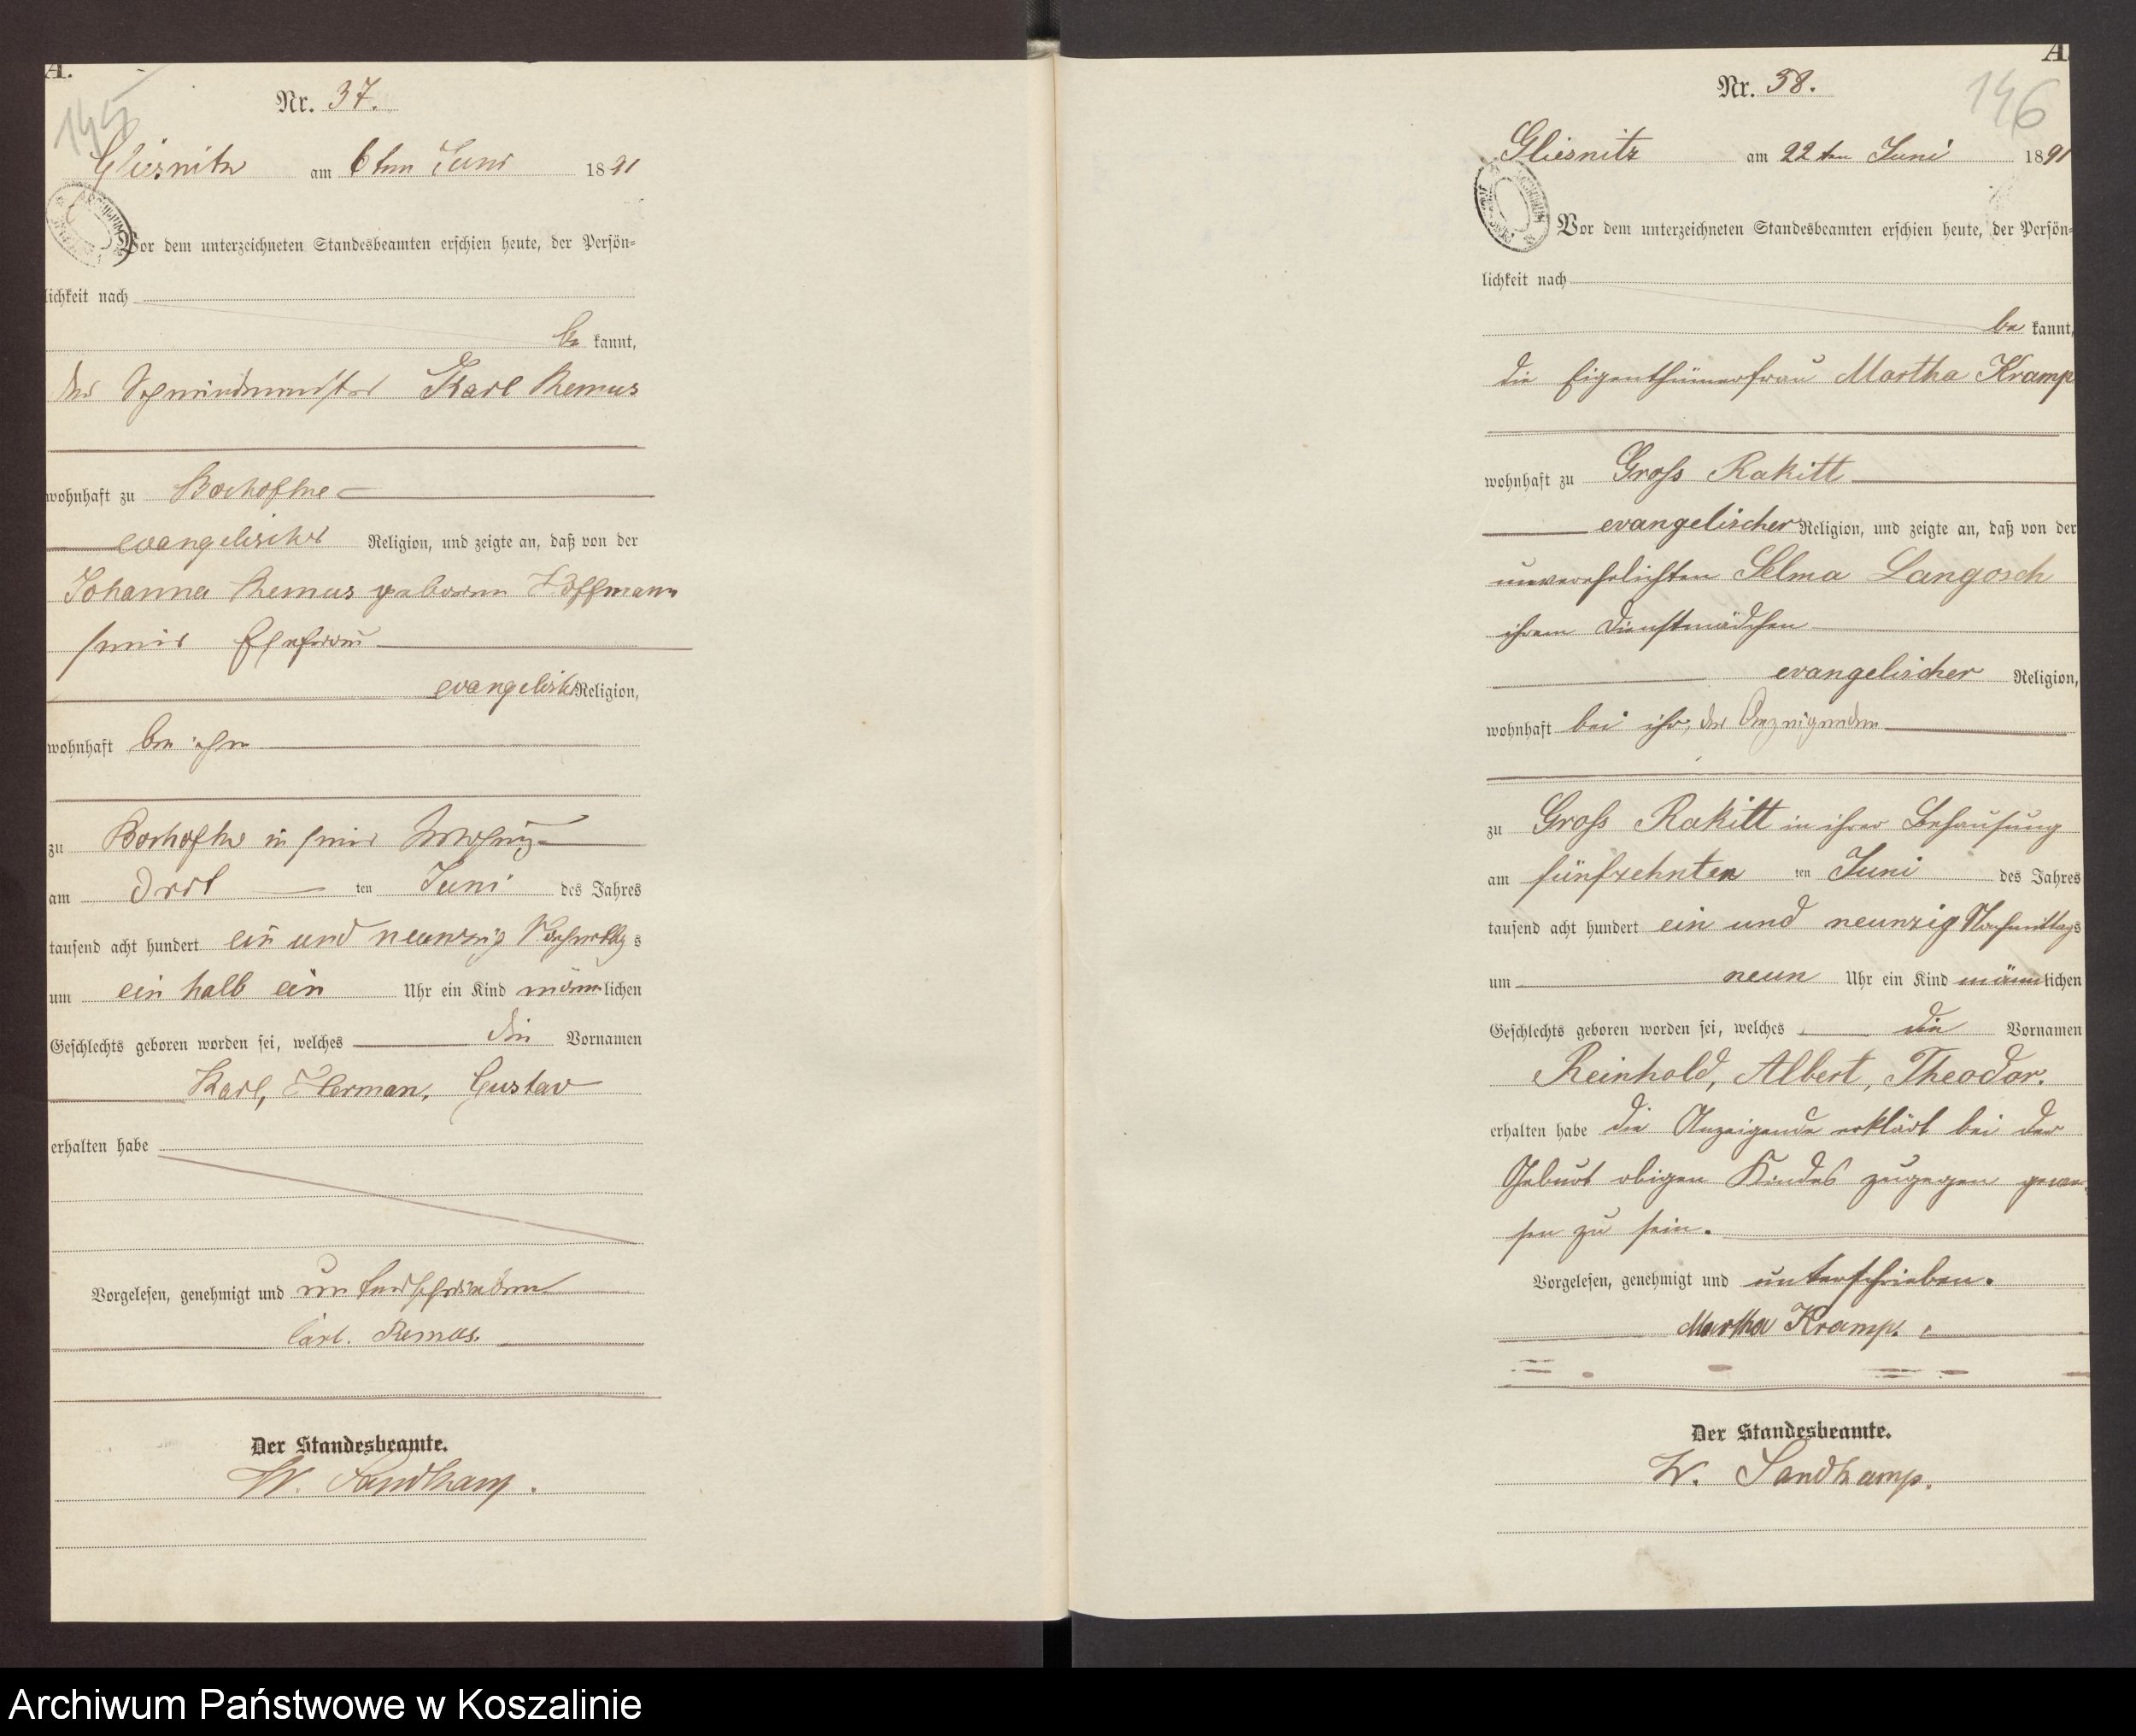 A.
145
Nr. 37.
Gliesnitz am 6ten Juni 1891
Vor dem unterzeichneten Standesbeamten erschien heute, der Persön=
lichkeit nach
be kannt,
der Karl Remus
wohnhaft zu
evangelischer Religion, und zeigte an, daß von der
Johanna Remus geborene Hoffmann
seiner Ehefrau
evangelischer Religion,
wohnhaft bei ihm
zu in seiner Wohnung
am drit ten Juni des Jahres
tausend acht hundert ein und neunzig Nachmittags
um ein halb ein Uhr ein Kind männlichen
Geschlechts geboren worden sei, welches die Vornamen
Karl, Herman, Gustav
erhalten habe
Vorgelesen, genehmigt und unterschrieben
Carl. Remus.
Der Standesbeamte.
W. Sandkamp.
A.
146
Nr. 38.
Gliesnitz am 22ten Juni 1891
Vor dem unterzeichneten Standesbeamten erschien heute, der Persön=
lichkeit nach
be kannt,
die Eigenthümerfrau Martha Kramp
wohnhaft zu Gross Rakitt
evangelischer Religion, und zeigte an, daß von der
unverehelichten Selma Langosch
ihrem Dienstmädchen
evangelischer Religion,
wohnhaft bei ihr, der Anzeigenden
zu Gross Rakitt in ihrer Behausung
am fünfzehnten ten Juni des Jahres
tausend acht hundert ein und neunzig Nachmittags
um neun Uhr ein Kind männlichen
Geschlechts geboren worden sei, welches die Vornamen
Reinhold, Albert, Theodor.
erhalten habe die Anzeigende erklärt bei der
Geburt obigen Kindes zugegen gewe-
sen zu sein.
Vorgelesen, genehmigt und unterschrieben.
Martha Kramp.
Der Standesbeamte.
W. Sandkamp.
Archiwum Państwowe w Koszalinie